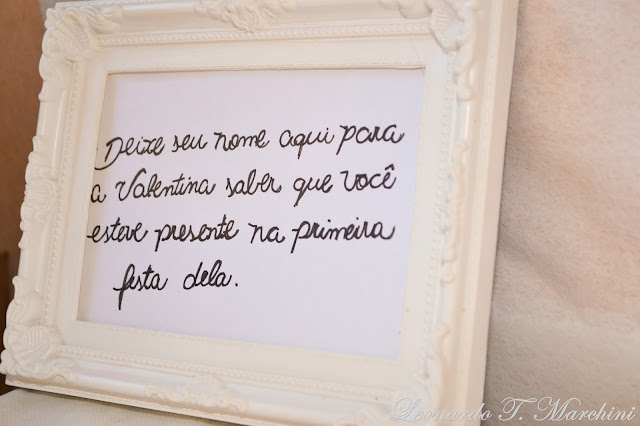 Deixe seu nome aqui para
a Valentina saber que você
esteve presente na primeira
festa dela.
Leonardo T. Marchini